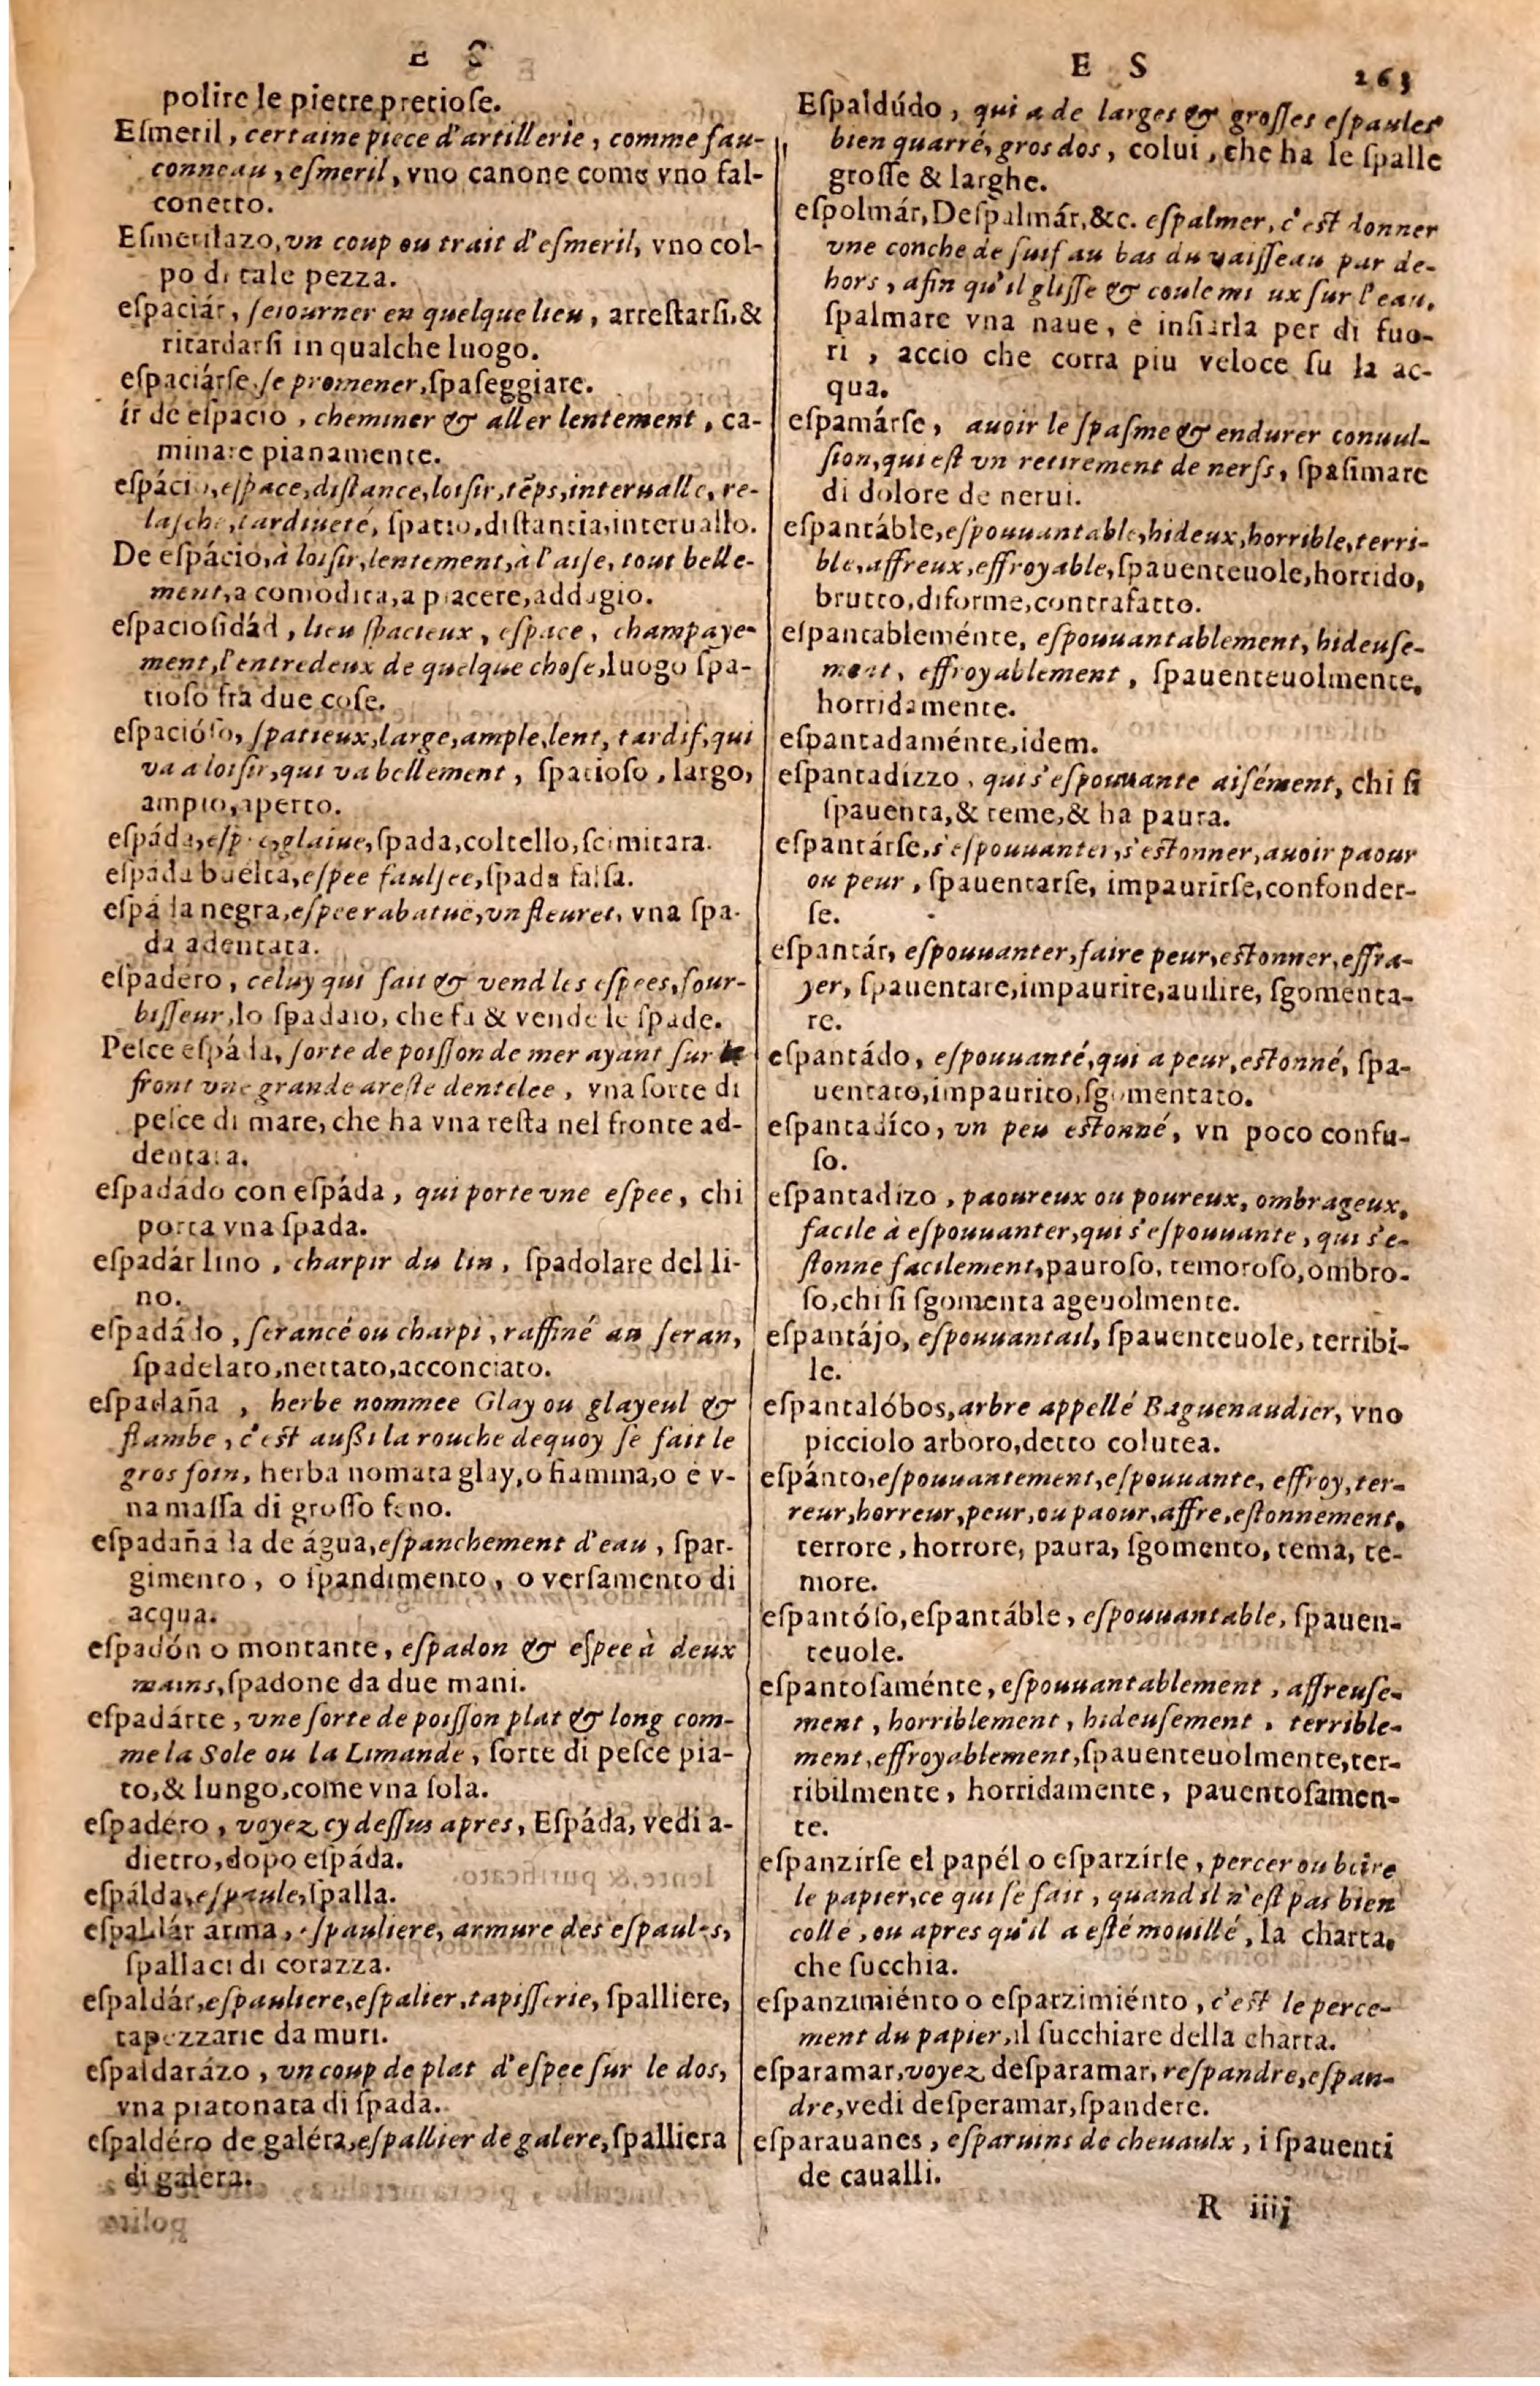 E S
polire le pietre pretiose.
Eſmeril, certaine piece d'artillerie, comme fau-
conneau, eſmeril, vno canone come vno fal-
conetto.
Eſmerilazo, vn coup ou trait d'eſmeril, vno col-
po di tale pezza.
eſpaciár, ſeiourner en quelque lieu, arreſtarſi, &
ritardarſi in qualche luogo.
eſpaciárſe, ſe promener, ſpaſeggiare.
ir de eſpacio, cheminer & aller lentement, ca-
minare pianamente.
eſpácio, eſpace, diſtance, loiſir, tẽps, interualle, re-
laſche, tardiueté, ſpatio, diſtantia, interuallo.
De eſpácio, à loiſir, lentement, à l'aiſe, tout belle-
ment, a comodita, a piacere, addagio.
eſpacioſidád, lieu ſpacieux, eſpace, champaye-
ment, l'entredeux de quelque choſe, luogo ſpa-
tioſo fra due coſe.
eſpacióſo, ſpatieux, large, ample, lent, tardif, qui
va a loiſir, qui va bellement, ſpatioſo, largo,
ampio, aperto.
eſpáda, eſpee, glaiue, ſpada, coltello, ſcimitara.
eſpáda buelta, eſpee faulſee, ſpada falſa.
eſpáda negra, eſpee rabatue, vn fleuret, vna ſpa-
da adentata.
eſpadero, celuy qui fait & vend les eſpees, four-
biſſeur, lo ſpadaio, che fa & vende le ſpade.
Peſce eſpáda, ſorte de poiſſon de mer ayant ſur le
front vne grande areſte dentelee, vna ſorte di
peſce di mare, che ha vna reſta nel fronte ad-
dentata.
eſpadádo con eſpáda, qui porte vne eſpee, chi
porta vna ſpada.
eſpadár lino, charpir du lin, ſpadolare del li-
no.
eſpadádo, ſerancé ou charpi, raffiné au ſeran,
ſpadelato, nettato, acconciato.
eſpadaña, herbe nommee Glay ou glayeul &
flambe, c'eſt außi la rouche dequoy ſe fait le
gros foin, herba nomata glay, o fiamma, o è v-
na maſſa di groſſo feno.
eſpadaña la de água, eſpanchement d'eau, ſpar-
gimento, o ſpandimento, o verſamento di
acqua.
eſpadón o montante, eſpadon & eſpee à deux
mains, ſpadone da due mani.
eſpadárte, vne ſorte de poiſſon plat & long com-
me la Sole ou la Limande, ſorte di peſce pia-
to, & lungo, come vna ſola.
eſpadéro, voyez cy deſſus apres, Eſpáda, vedi a-
dietro, dopo eſpáda.
eſpálda, eſpaule, ſpalla.
eſpaldár arma, eſpauliere, armure des eſpaules,
ſpallaci di corazza.
eſpaldár, eſpauliere, eſpalier, tapiſſerie, ſpalliere,
tapezzarie da muri.
eſpaldarázo, vn coup de plat d'eſpee ſur le dos,
vna piatonata di ſpada.
eſpaldéro de galéra, eſpallier de galere, ſpalliera
di galera.
E S 263
Eſpaldúdo, qui a de larges & groſſes eſpaules
bien quarré, gros dos, colui, che ha le ſpalle
groſſe & larghe.
eſpolmár, Deſpalmár, &c. eſpalmer, c'eſt donner
vne conche de ſuif au bas du vaiſſeau par de-
hors, afin qu'il gliſſe & coule mieux ſur l'eau,
ſpalmare vna naue, è inſiarla per di fuo-
ri, accio che corra piu veloce ſu la ac-
qua.
eſpamárſe, auoir le ſpaſme & endurer conuul-
ſion, qui eſt vn retirement de nerfs, ſpaſimare
di dolore de nerui.
eſpantáble, eſpouuantable, hideux, horrible, terri-
ble, affreux, effroyable, ſpauenteuole, horrido,
brutto, diforme, contrafatto.
eſpantableménte, eſpouuantablement, hideuſe-
ment, effroyablement, ſpauenteuolmente,
horridamente.
eſpantadaménte, idem.
eſpantadízzo, qui s'eſpouuante aiſément, chi ſi
ſpauenta, & teme, & ha paura.
eſpantárſe, s'eſpouuanter, s'eſtonner, auoir paour
ou peur, ſpauentarſe, impaurirſe, confonder-
ſe.
eſpantár, eſpouuanter, faire peur, eſtonner, effra-
yer, ſpauentare, impaurire, auilire, ſgomenta-
re.
eſpantádo, eſpouuanté, qui a peur, eſtonné, ſpa-
uentato, impaurito, ſgomentato.
eſpantadíco, vn peu eſtonné, vn poco confu-
ſo.
eſpantadizo, paoureux ou poureux, ombrageux,
facile à eſpouuanter, qui s'eſpouuante, qui s'e-
ſtonne facilement, pauroſo, temoroſo, ombro-
ſo, chi ſi ſgomenta ageuolmente.
eſpantájo, eſpouuantail, ſpauenteuole, terribi-
le.
eſpantalóbos, arbre appellé Baguenaudier, vno
picciolo arboro, detto colutea.
eſpánto, eſpouuantement, eſpouuante, effroy, ter-
reur, horreur, peur, ou paour, affre, eſtonnement,
terrore, horrore, paura, ſgomento, tema, te-
more.
eſpantóſo, eſpantáble, eſpouuantable, ſpauen-
teuole.
eſpantoſaménte, eſpouuantablement, affreuſe-
ment, horriblement, hideuſement, terrible-
ment, effroyablement, ſpauenteuolmente, ter-
ribilmente, horridamente, pauentoſamen-
te.
eſpanzirſe el papél o eſparzírſe, percer ou boire
le papier, ce qui ſe fait, quand il n'eſt pas bien
collé, ou apres qu'il a eſté mouillé, la charta,
che ſucchia.
eſpanzimiénto o eſparzimiénto, c'eſt le perce-
ment du papier, il ſucchiare della charta.
eſparamar, voyez deſparamar, reſpandre, eſpan-
dre, vedi deſperamar, ſpandere.
eſparauanes, eſparuins de cheuaulx, i ſpauenti
de caualli.
R iiij